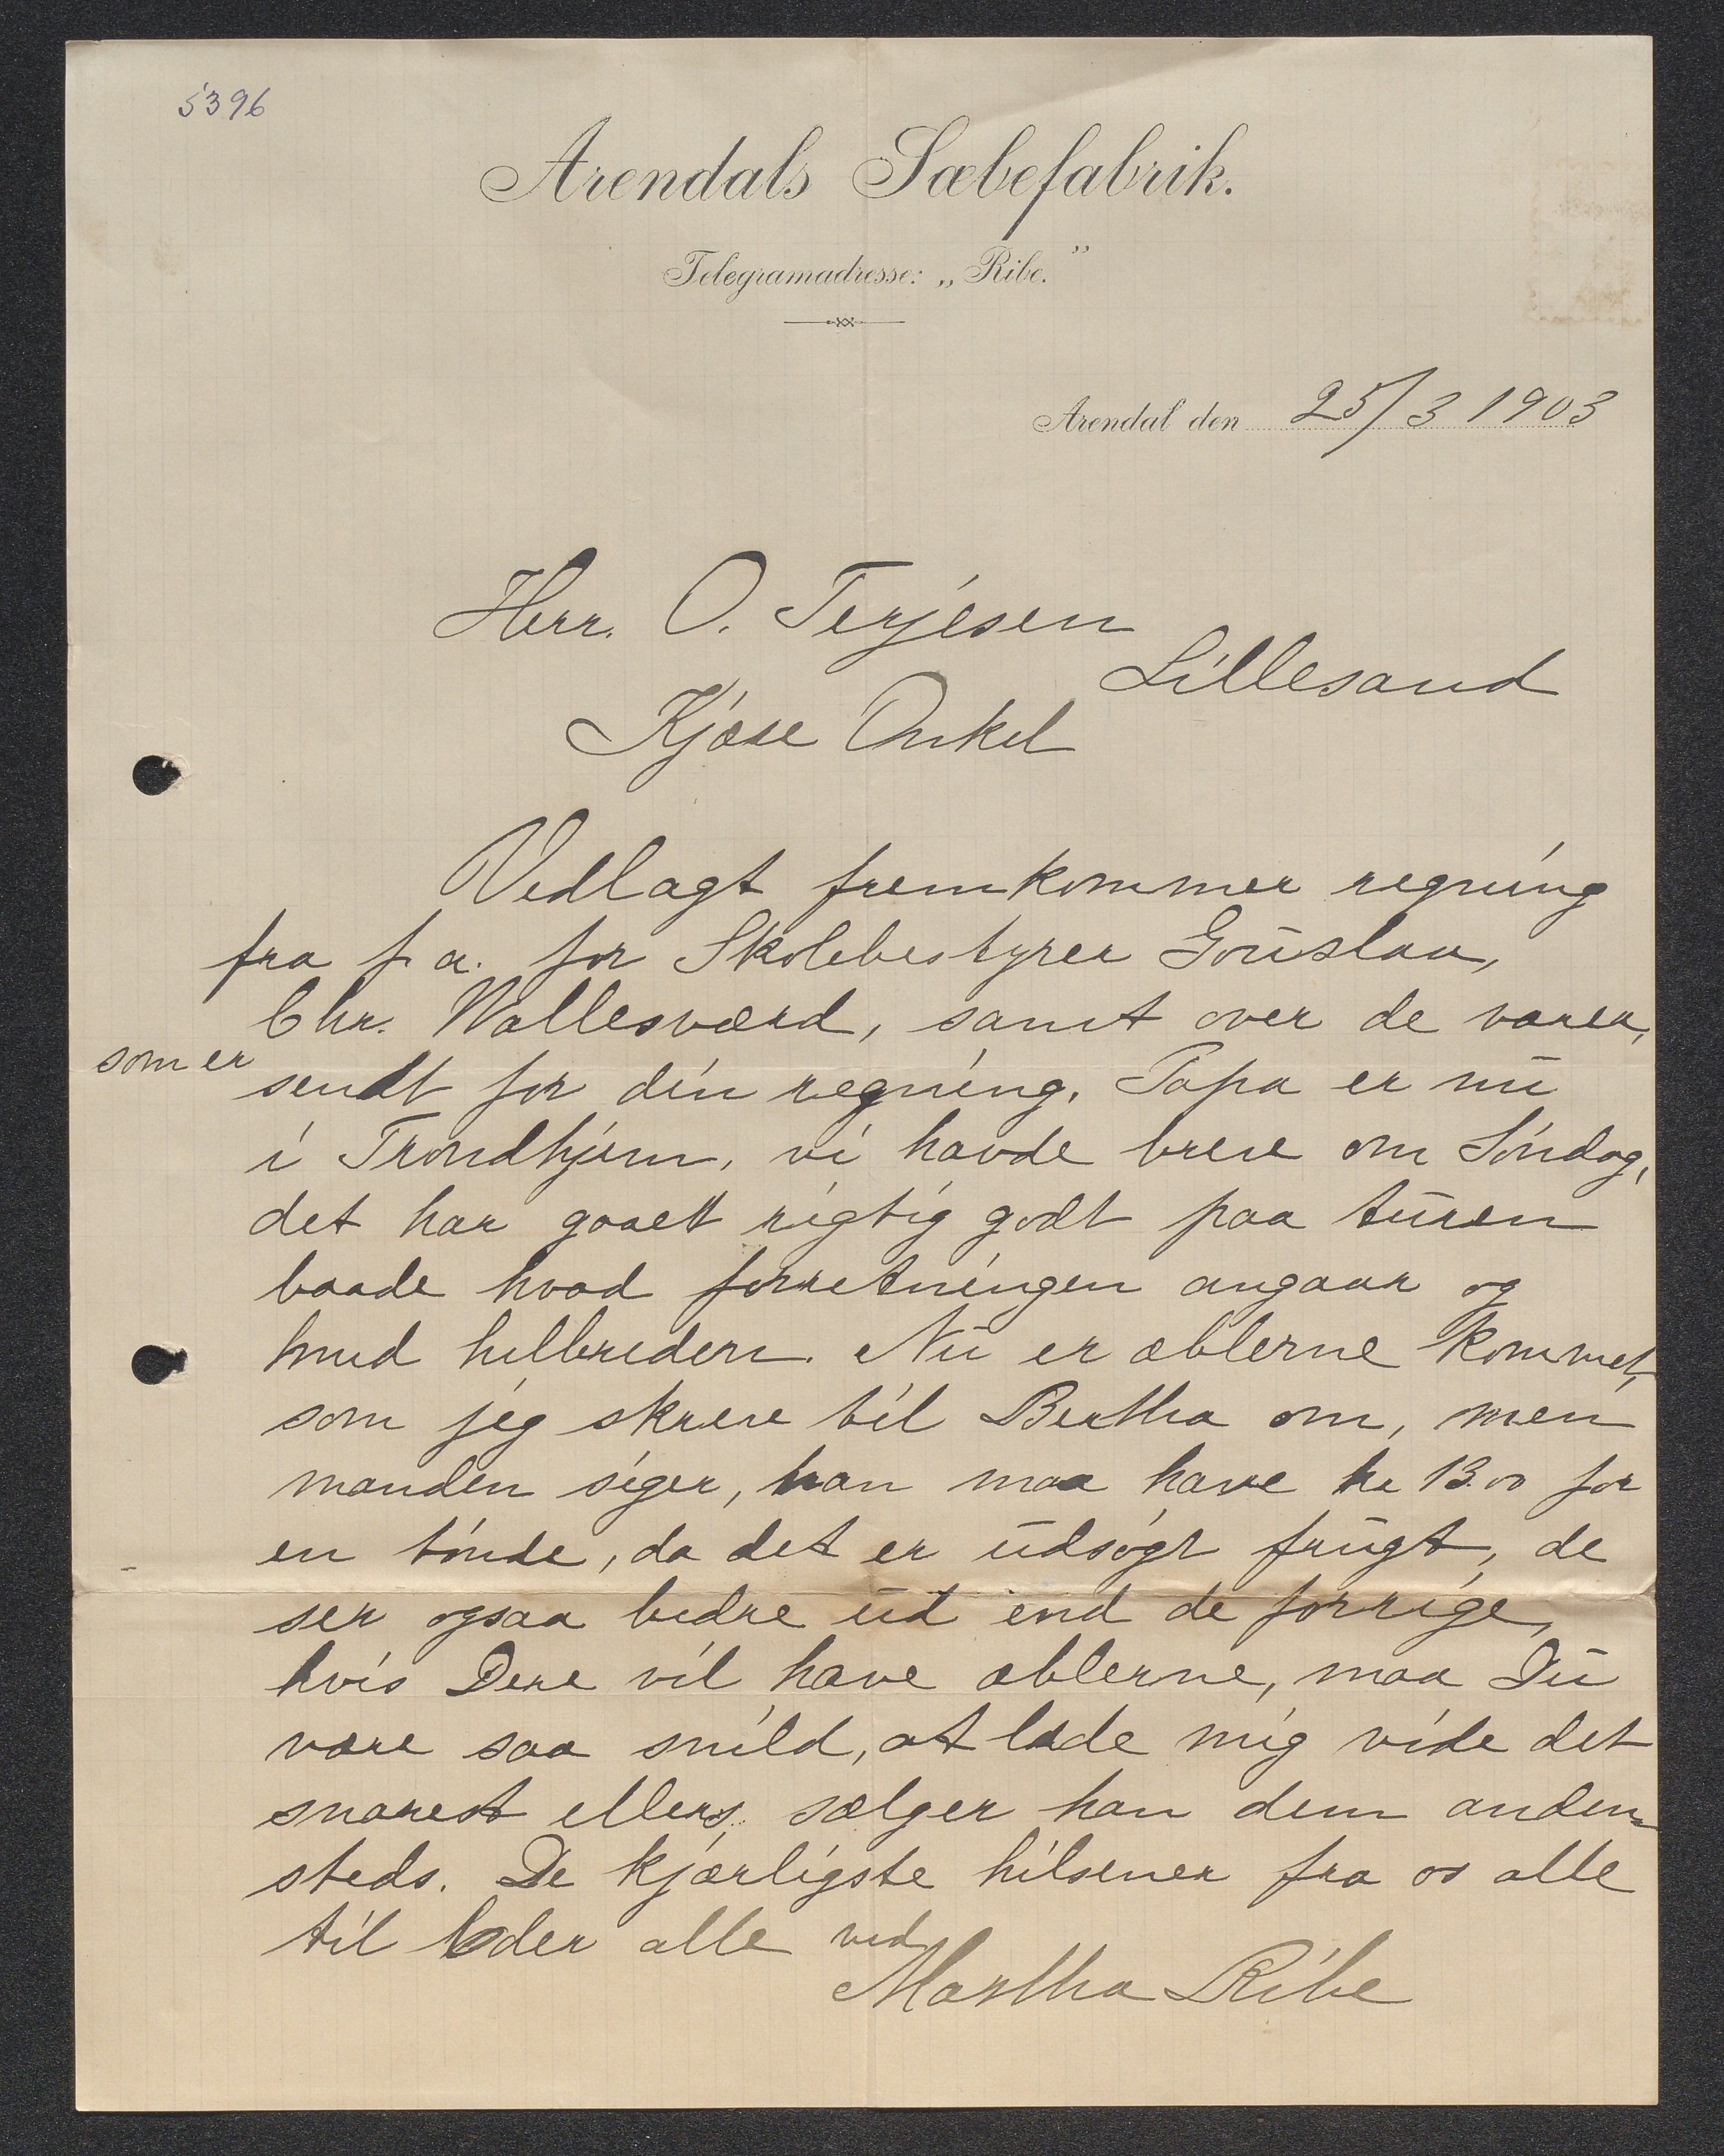 5396
Arendals Sæbefabrik.
Telegramadresse: „Ribe."
Arendal den 25/3 1903
Herr. O. Terjesen
Lillesand
Kjære Onkel
Vedlagt fremkommer regning
fra f. a. for Skolebestyrer Gouslaa,
Chr. Wallesværd, samt over de varer,
som er sendt for din regning. Papa er nu
i Trondhjem, vi havde breve om Søndag,
det har gaaet rigtig godt paa turen
baade hvad forretningen angaar og
med helbreden. Nu er æblerne kommet,
som jeg skreve til Bertha om, men
manden siger, han maa have kr 13.00 for
en tónde, da det er udsøgt frugt, de
ser ogsaa bedre ud end de forrige,
hvis Dere vil have æblerne, maa Du
være saa snild, at lade mig vide det
snarest ellers sælger han dem anden-
steds. De kjærligste hilsener fra os alle
til Eder alle ved
Martha Ribe